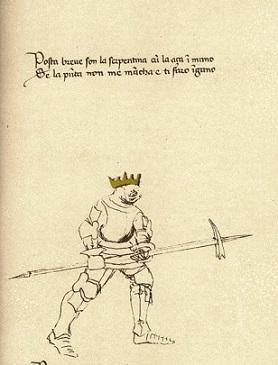 Posta breve son la serpentina cū la aça ī mano
Se la pūta non me mācha e ti faro īgano